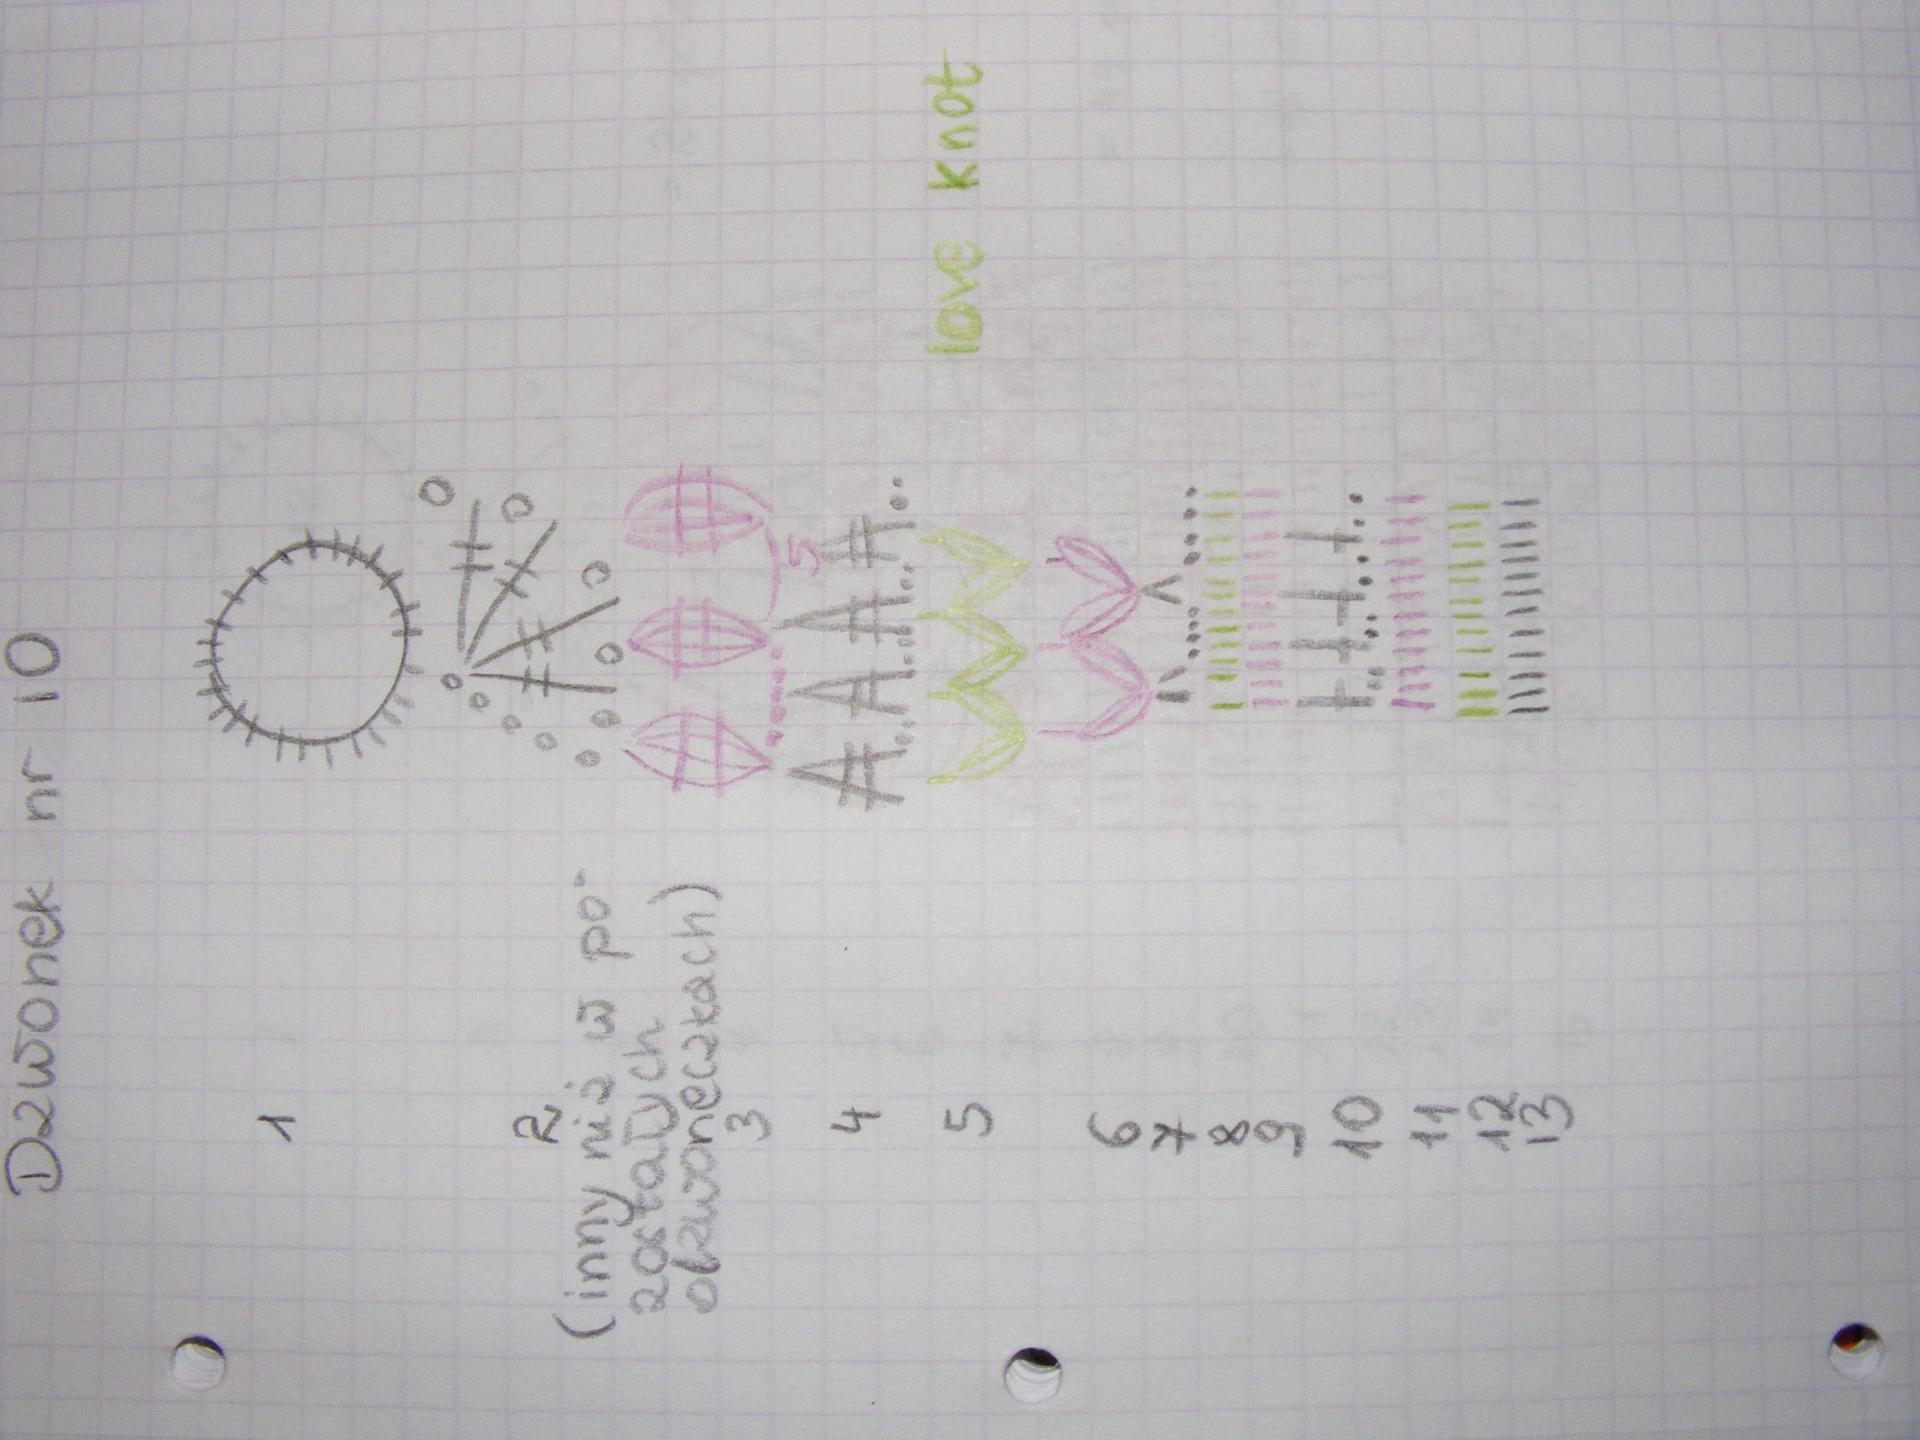 Dzwonek nr 10
1
2
(inny niż w po-
zostałych
dzwoneczkach)
3
5
4
5
love knot
6
7
8
9
10
11
12
13